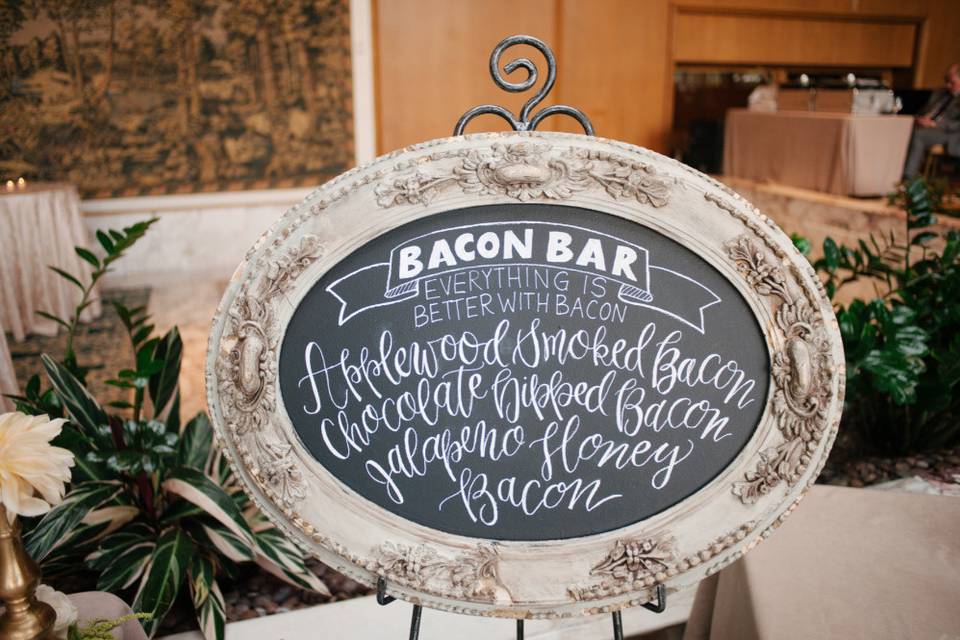 BACON BAR
EVERYTHING IS
BETTER WITH BACON
Applewood Smoked Bacon
Chocolate Dipped Bacon
Jalapeno Honey
Bacon